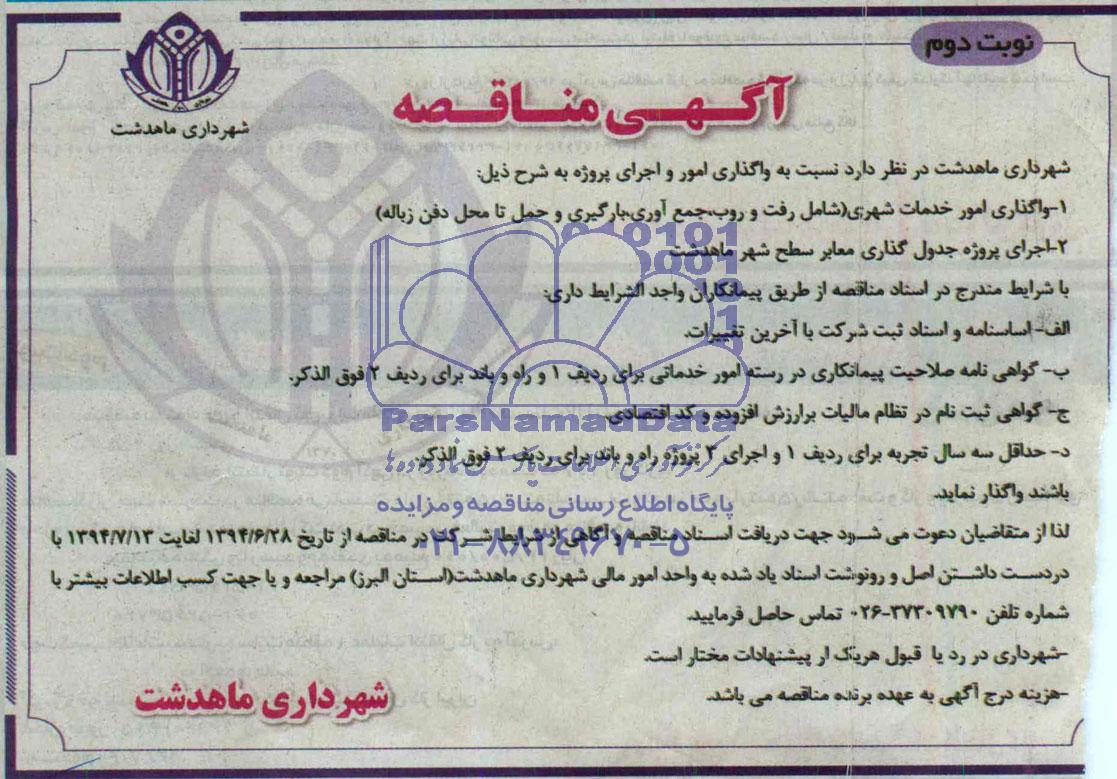 نوبت دوم
شهرداری ماهدشت
آگهی مناقصه
شهرداری ماهدشت در نظر دارد نسبت به واگذاری امور و اجرای پروژه به شرح ذیل:
۱-واگذاری امور خدمات شهری(شامل رفت و روب،جمع آوری،بارگیری و حمل تا محل دفن زباله)
۲-اجرای پروژه جدول گذاری معابر سطح شهر ماهدشت
با شرایط مندرج در اسناد مناقصه از طریق پیمانکاران واجد الشرایط داری:
الف- اساسنامه و اسناد ثبت شرکت با آخرین تغییرات.
ب- گواهی نامه صلاحیت پیمانکاری در رسته امور خدماتی برای ردیف ۱ و راه و باند برای ردیف ۲ فوق الذکر.
ج- گواهی ثبت نام در نظام مالیات برارزش افزوده و کد اقتصادی.
د- حداقل سه سال تجربه برای ردیف ۱ و اجرای ۳ پروژه راه و باند برای ردیف ۲ فوق الذکر.
باشند واگذار نماید.
لذا از متقاضیان دعوت می شود جهت دریافت اسناد مناقصه و آگاهی از شرایط شرکت در مناقصه از تاریخ ۱۳۹۴/۶/۲۸ لغایت ۱۳۹۴/۷/۱۳ با
دردست داشتن اصل و رونوشت اسناد یاد شده به واحد امور مالی شهرداری ماهدشت(استان البرز) مراجعه و یا جهت کسب اطلاعات بیشتر با
شماره تلفن ۳۷۳۰۹۷۹۰-۰۲۶ تماس حاصل فرمایید.
-شهرداری در رد یا قبول هریک از پیشنهادات مختار است.
-هزینه درج آگهی به عهده برنده مناقصه می باشد.
شهرداری ماهدشت
ParsNamadData
پایگاه اطلاع رسانی مناقصه و مزایده
۰۲۱-۸۸۳۴۹۶۷۰-۵